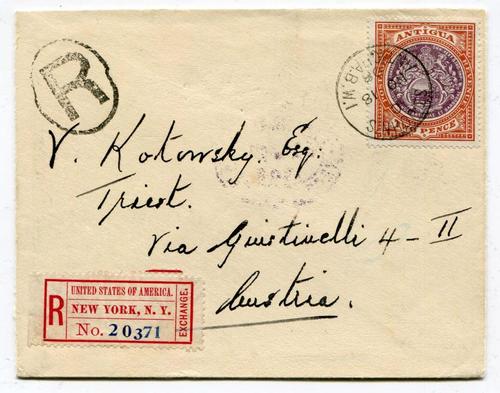 R
ANTIGUA
PENCE
B.W.I.
V. Kotowsky Esq.
Triest.
Via Giustinelli 4 - II
Austria.
R
UNITED STATES OF AMERICA.
NEW YORK, N. Y.
No. 20371
EXCHANGE.